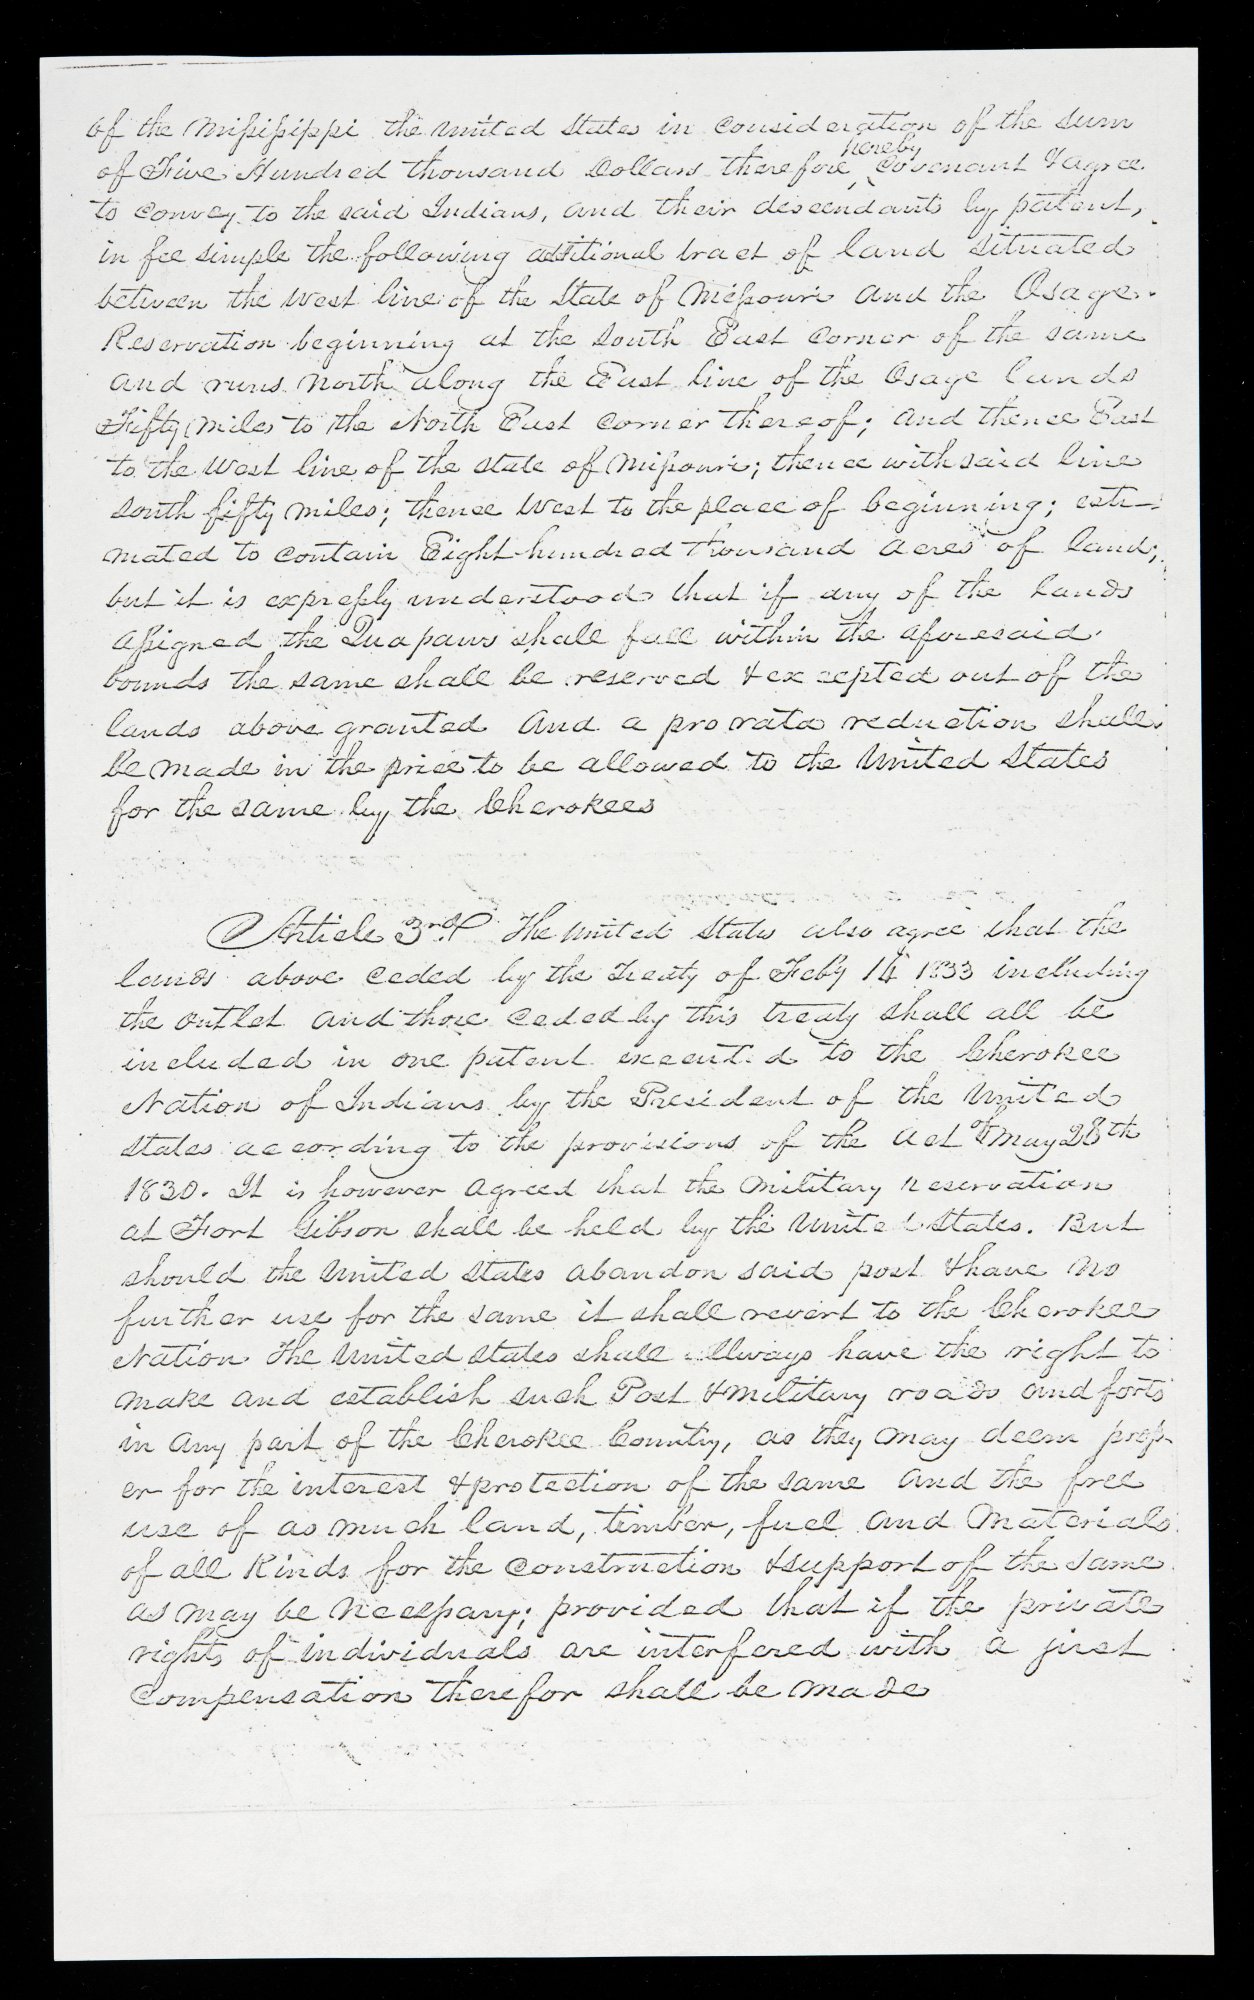 of the Missisippi the United States in consideration of the sum
of Five Hundred thousand Dollars therefore hereby Covenant & agree
to Convey to the said Indians, and their descendants by patent,
in fee simple the following additional tract of land situated
between the West line of the State of Missouri and the Osage
Reservation beginning at the South East Corner of the same
and runs North along the East line of the Osage lands
Fifty Miles to the North East Corner thereof; and thence East
to the West line of the state of Missouri; thence with said line
South fifty miles; thence West to the place of beginning; esti-
mated to contain Eight hundred thousand acres of land;
but it is expressly understood that if any of the lands
Assigned the Quapaws shall fall within the aforesaid
bounds the same shall be reserved & excepted out of the
lands above granted and a pro rata reduction shall
be made in the price to be allowed to the United States
for the same by the Cherokees
Article 3rd The United States also agree that the
lands above ceded by the Treaty of Feby 14 1833 including
the outlet and those ceded by this treaty shall all be
included in one patent executed to the Cherokee
Nation of Indians by the President of the United
States according to the provisions of the act of May 28th
1830. It is however agreed that the military reservation
at Fort Gibson shall be held by the United States. But
should the United States abandon said post & have no
further use for the same it shall revert to the Cherokee
Nation The United States shall allways have the right to
make and establish such Post & military roads and forts
in any part of the Cherokee Country, as they may deem prop-
er for the interest & protection of the same and the free
use of as much land, timber, fuel and materials
of all Kinds for the construction & support of the same
as may be necessary; provided that if the private
rights of individuals are interfered with a just
compensation therefor shall be made